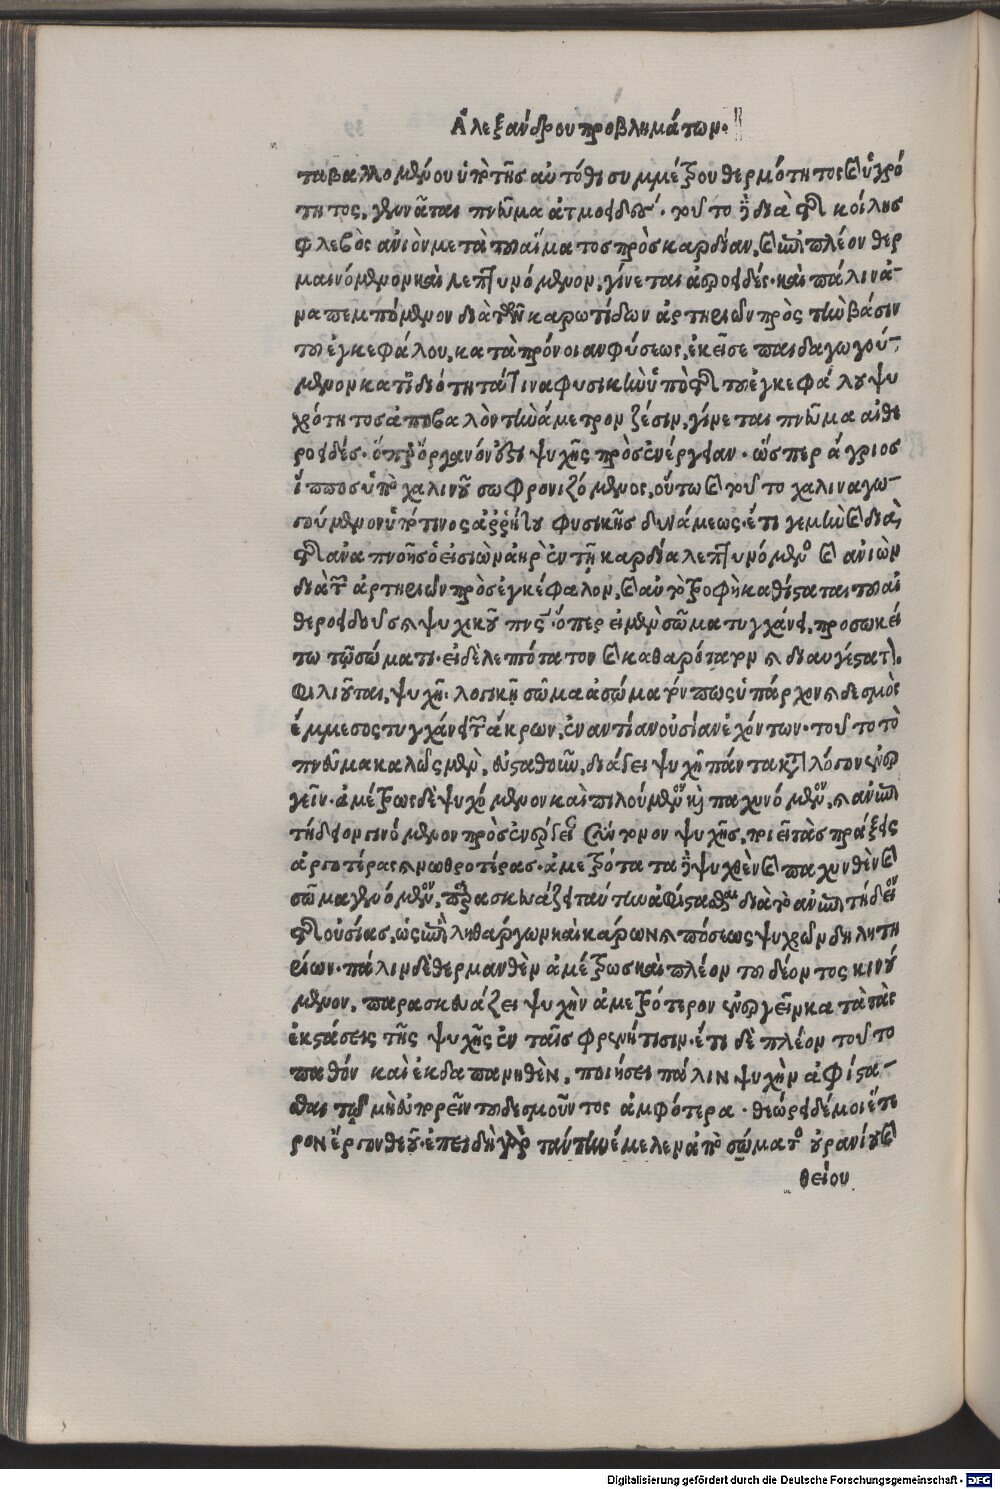 Ἀλεξάνδρου προβλημάτων.
ταβαλλομένου ὑπὸ τῆς αὐτόθι συμμέτρου θερμότητος καὶ ὑγρό
τητος, γεννᾶται πνεῦμα ἀτμοειδές. τοῦτο δὲ διὰ τῆς κοίλης
φλεβὸς ἀνιὸν μετὰ τοῦ αἵματος πρὸς καρδίαν, καὶ ἐπὶ πλέον θερ
μαινόμενον καὶ λεπτυνόμενον, γίνεται ἀεροειδές. καὶ πάλιν ἀ-
ναπεμπόμενον διὰ τῶν καρωτίδων ἀρτηριῶν πρὸς τὴν βάσιν
τοῦ ἐγκεφάλου, κατὰ πρόνοιαν φύσεως, ἐκεῖσε παιδαγωγού-
μενον κατ' ἰδιότητά τινα φυσικὴν ὑπὸ τῆς τοῦ ἐγκεφάλου ψυ
χρότητος ἀποβαλὸν τὴν ἄμετρον ζέσιν, γίνεται πνεῦμα αἰθε
ροειδές. ὅπερ ὄργανόν ἐστι ψυχῆς πρὸς ἐνέργειαν. ὥσπερ ἄγριος
ἵππος ὑπὸ χαλινοῦ σωφρονιζόμενος, οὕτω καὶ τοῦτο χαλιναγω-
γούμενον ὑπό τινος ἀρρήτου φυσικῆς δυνάμεως. ἔτι γε μὴν καὶ διὰ
τῆς ἀναπνοῆς ὁ εἰσιὼν ἀὴρ ἐν τῇ καρδίᾳ λεπτυνόμενος καὶ ἀνιὼν
διὰ τῶν ἀρτηριῶν πρὸς ἐγκέφαλον, καὶ αὐτὸ τροφὴ καθίσταται τοῦ αἰ
θεροειδοῦς καὶ ψυχικοῦ πνεύματος. ὅπερ εἰ μὲν σῶμα τυγχάνει, προσῳκεί
τω τῷ σώματι. εἰ δὲ λεπτότατον καὶ καθαρότατον καὶ διαυγέστατον.
φιλιοῦται, ψυχῇ λογικῇ σῶμα ἀσώματόν πως ὑπάρχον καὶ δεσμὸς
ἔμμεσος τυγχάνει τῶν ἄκρων, ἐναντίαν οὐσίαν ἐχόντων. τοῦτο τὸ
πνεῦμα καλῶς μὲν, εὐσταθοῦν, διάγει ψυχὴ πάντα κατὰ λόγον ἐνερ
γεῖν. ἀμέτρως δὲ ψυχόμενον καὶ πιλούμενον καὶ παχυνόμενον, καὶ ἀνεπι
τήδειον γινόμενον πρὸς ἐνέργειαν σύντομον ψυχῆς, ποιεῖ τὰς πράξεις
ἀργοτέρας καὶ νωθροτέρας. ἀμετρότατα δὲ ψυχθὲν καὶ παχυνθὲν καὶ
σῶμα γενόμενον, παρασκευάζει ταύτην ἀφίστασθαι διὰ τὸ ἀνεπιτήδειον
τῆς οὐσίας, ὡς ἐπὶ ληθάργων καὶ κάρων καὶ πόσεως ψυχρῶν δηλητη
ρίων. πάλιν δὲ θερμανθὲν ἀμέτρως καὶ πλέον τοῦ δέοντος κινού
μενον, παρασκευάζει ψυχὴν ἀμετρότερον ἐνεργεῖν κατὰ τὰς
ἐκστάσεις τῆς ψυχῆς ἐν ταῖς φρενήτισιν. ἔτι δὲ πλέον τοῦτο
παθόν καὶ ἐκδαπανηθὲν, ποιήσει πάλιν ψυχὴν ἀφίστα-
σθαι τῷ μὴ εὐπορεῖν τοῦ δεσμοῦντος ἀμφότερα. θεώρει δέ μοι ἕτε
ρον ἔργον θεοῦ. ἐπειδὴ γὰρ ταύτην ἔμελεν ἀπὸ σώματος οὐρανίου καὶ
θείου